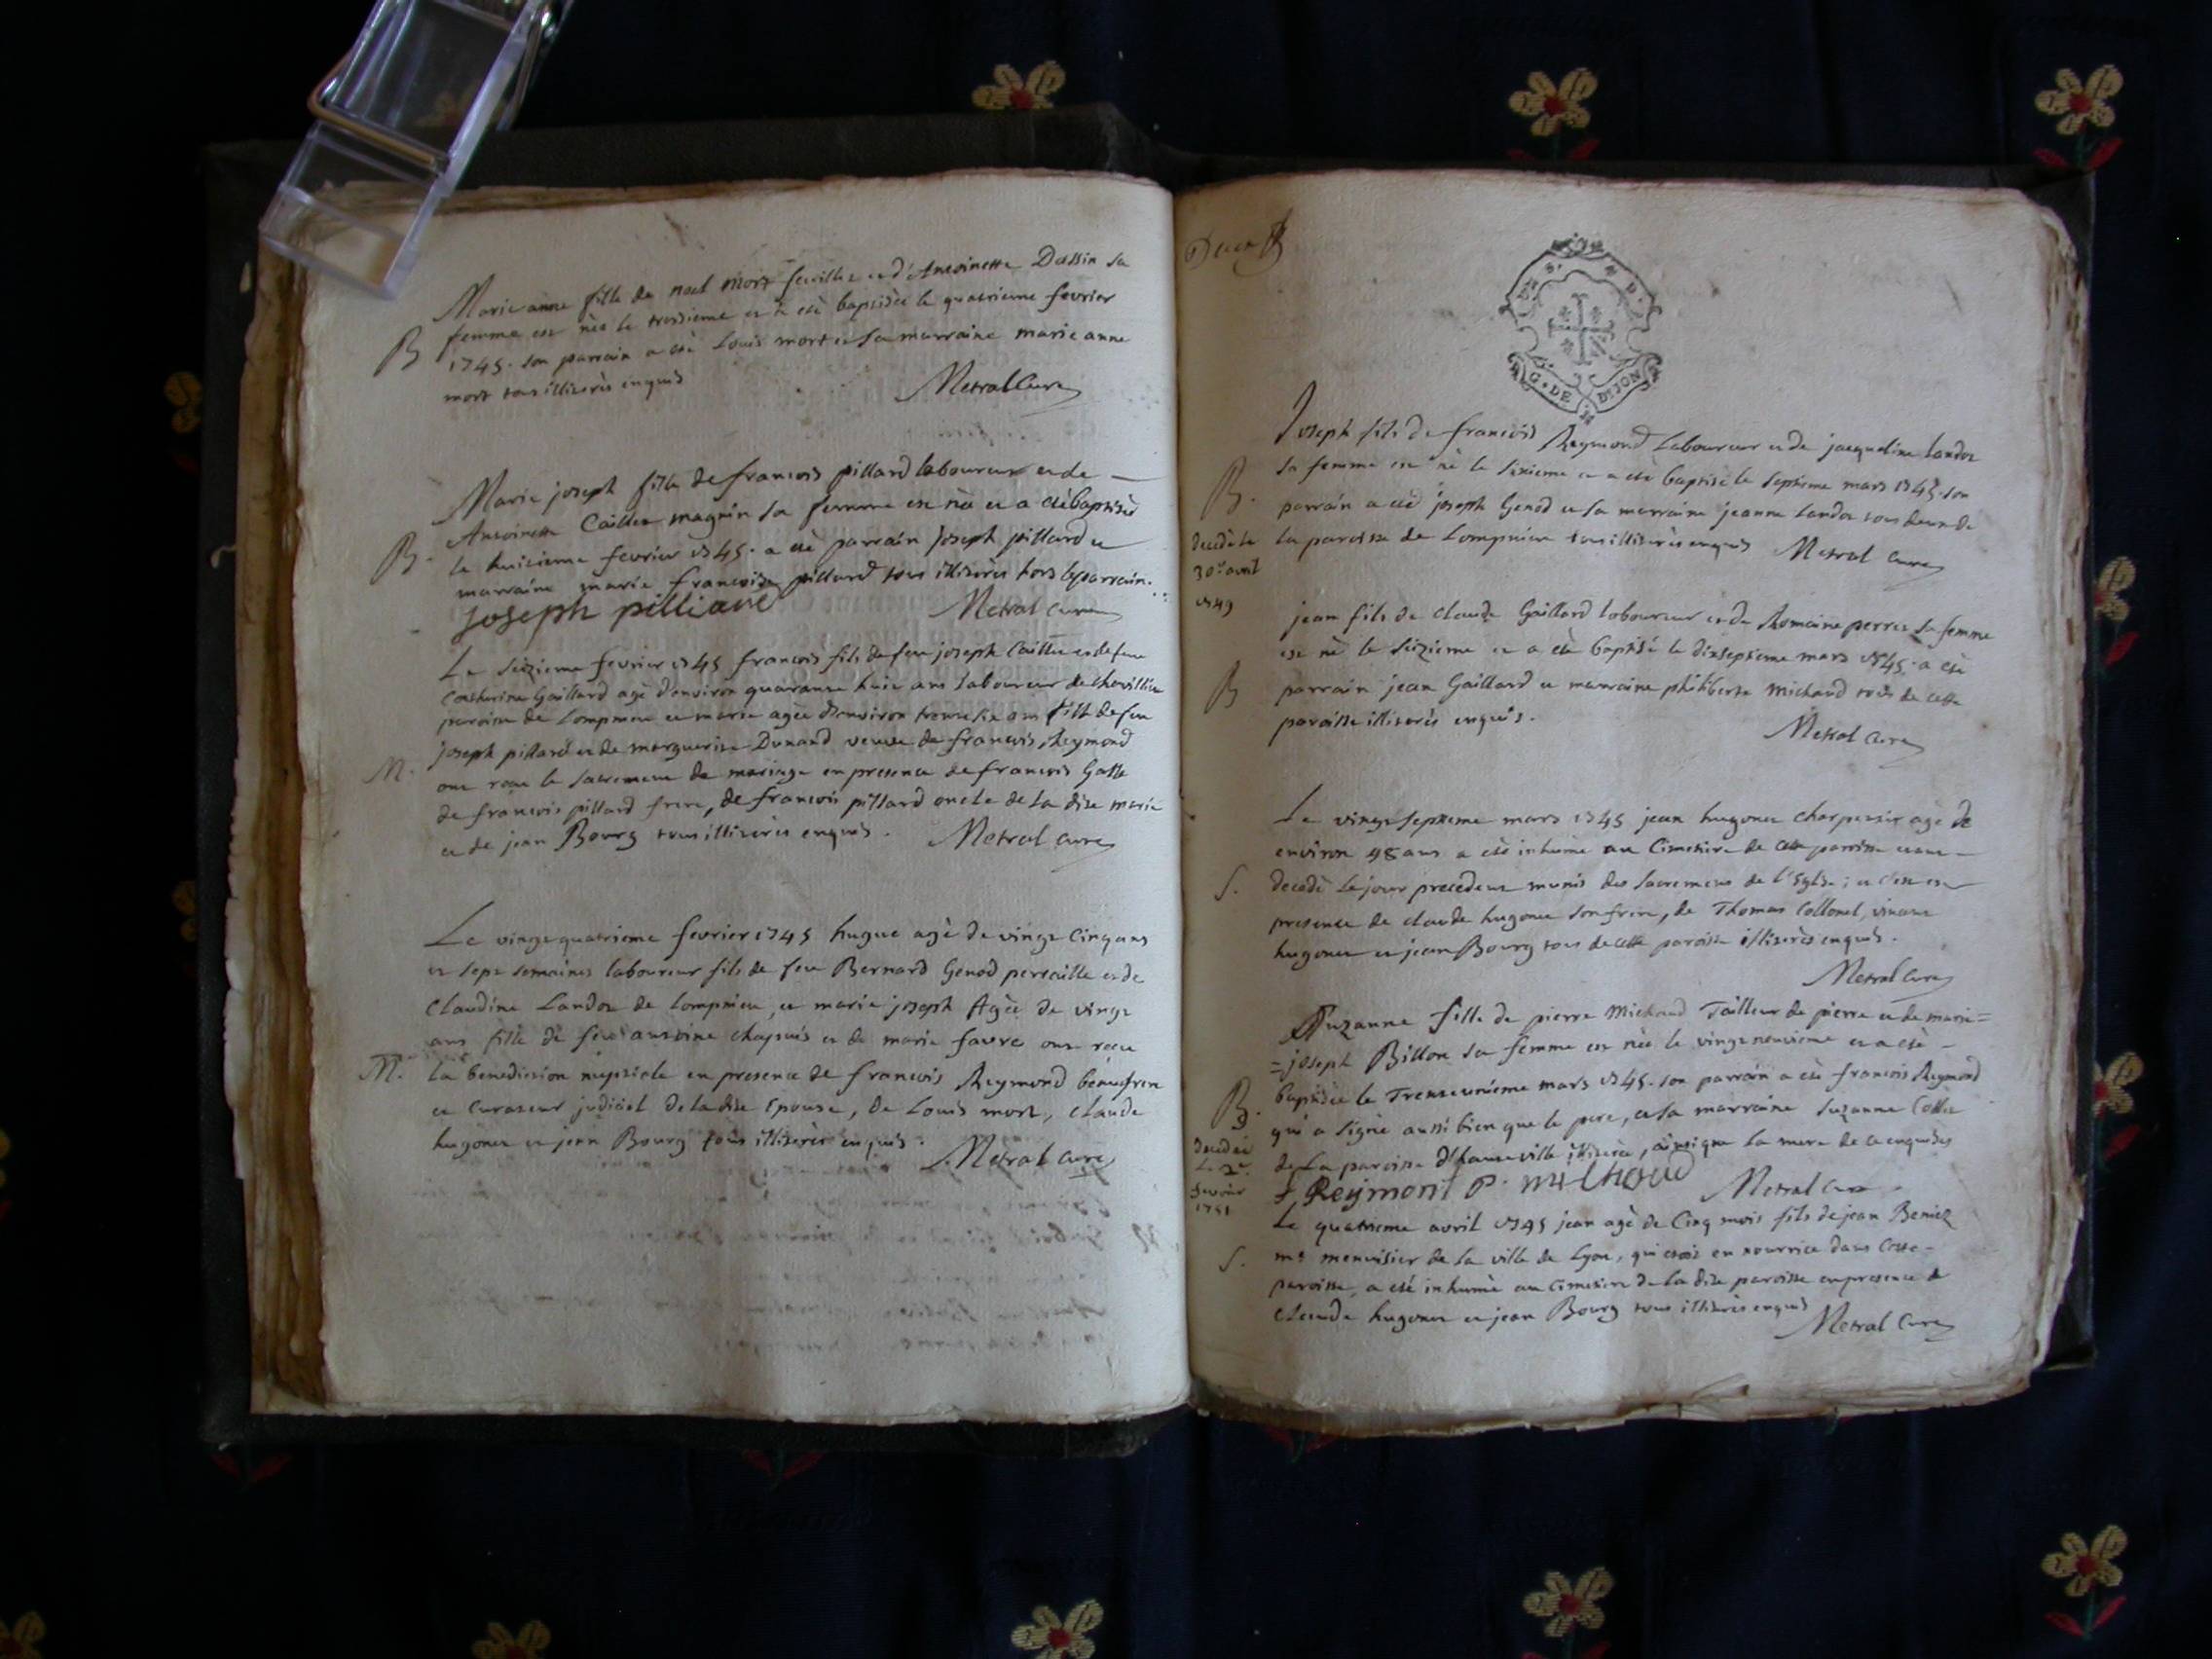 Marie anne fille de noel Mort feuillet et d'Antoinette Dassin sa
femme est née le troisieme et a eté baptisée le quatrieme fevrier
B
1745. son parrain a eté Louis mort et sa marraine marie anne
mort tous illiterés enquis
Metral Curé
Marie joseph fille de francois pillard laboureur et de
Antoinette Caillet magnin sa femme est née et a eté baptisée
B.
le huitieme fevrier 1745. a eté parrain joseph pillard et
marraine marie francoise pillard tous illiterés hors le parrain.
joseph pilliard
Metral curé
Le seizieme fevrier 1745 francois fils de feu joseph Caillet et de feue
Catherine Gaillard agé d'environ quarante huit ans laboureur de
paroisse de Lompnieu et marie agée d'environ trente six ans fille de feu
joseph pillard et de marguerite Dunand veuve de francois Reymond
M.
ont recu le sacrement de mariage en presence de francois
de francois pillard frere, de francois pillard oncle de la dite marie
et de jean Bourg tous illiterés enquis.
Metral curé
Le vingt quatrieme fevrier 1745 hugue agé de vingt cinq ans
et sept semaines laboureur fils de feu Bernard Genod perraille et de
Claudine Landoz de Lompnieu, et marie joseph Agée de vingt
ans fille de feu antoine chapuis et de marie favre ont recu
M.
la benediction nuptiale en presence de francois Reymond beaufrere
et Curateur judiciel de la dite Epouse, de Louis mort, claude
hugonet et jean Bourg tous illiterés enquis.
Metral curé
G. DE DIJON
Joseph fils de francois Reymond Laboureur et de jacqueline landoz
sa femme est né le sixieme et a eté baptisé le septieme mars 1745. son
B.
parrain a eté joseph Genod et sa marraine jeanne Landoz tous deux de
decedé le
30e avril
1749
la paroisse de Lompnieu tous illiterés enquis
Metral curé
jean fils de claude Gaillard laboureur et de Romaine perret sa femme
est né le seizieme et a eté baptisé le dixseptieme mars 1745. a eté
B
parrain jean Gaillard et marraine philiberte Michaud tous de cette
paroisse illiterés enquis.
Metral curé
Le vingt septieme mars 1745 jean hugonet charpentier agé de
environ 48 ans a eté inhumé au Cimetiere de cette paroisse etant
S.
decedé le jour precedent munis des sacremens de l'Eglise; et c'est en
presence de claude hugonet son frere, de Thomas Collonel,
hugonet et jean Bourg tous de cette paroisse illiterés enquis.
Metral curé
Suzanne fille de pierre Michaud Tailleur de pierre et de marie=
=joseph Billon sa femme est née le vingt neuvieme et a eté
baptisée le Trente unieme mars 1745. son parrain a eté francois Reymond
B.
qui a signé aussi bien que le pere, et sa marraine suzanne
decedée
le 2e
fevrier
1751
de la paroisse d'hauteville illiterée, ainsi que la mere de ce enquises
f Reymont P. Michoud
Metral curé
Le quatrieme avril 1745 jean agé de Cinq mois fils de jean
S.
me menuisier de la ville de Lyon, qui etoit en nourrice dans cette
paroisse, a eté inhumé au cimetiere de la dite paroisse en presence de
claude hugonet et jean Bourg tous illiterés enquis
Metral Curé